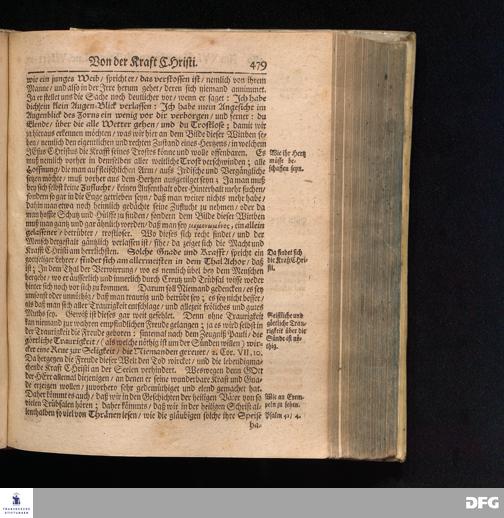 Von der Krafft CHristi. 479
wie ein junges Weib/ spricht er/ das verstossen ist/ nemlich von ihrem
Manne/ und also in der Irre herum gehet/ deren sich niemand annimmet.
Ja er stellet uns die Sache noch deutlicher vor/ wenn er saget: Ich habe
dich klein Augen-Blick verlassen: Ich habe mein Angesicht im
Augenblick des Zorns ein wenig vor dir verborgen/ und ferner: du
Elende/ über die alle Wetter gehen/ und du Trostlose; damit wir
ja hieraus erkennen möchten/ was wir hier an dem Bilde dieser Witben se-
hen/ nemlich den eigentlichen und rechten Zustand eines Hertzens/ in welchem
JEsus Christus die Krafft seines Trostes könne und wolle offenbaren. Es
muß nemlich vorher in demselben aller weltliche Trost verschwinden; alle
Hoffnung/ die man auf fleischlichen Arm/ aufs Irdische und Vergängliche
setzen möchte/ muß vorher aus dem Hertzen ausgetilget seyn; Ja man muß
bey sich selbst keine Zuflucht/ keinen Aufenthalt oder Hinterhalt mehr suchen/
sondern so gar in die Enge getrieben seyn/ daß man weiter nichts mehr habe/
dahin man etwa noch heimlich gedächte seine Zuflucht zu nehmen/ oder da
man hoffte Schutz und Hülffe zu finden/ sondern dem Bilde dieser Witben
muß man gantz und gar ähnlich worden/ daß man sey μεμονωμένος, ein allein
gelassener/ berührter/ trostloser. Wo dieses sich recht findet/ und der
Mensch dergestalt gäntzlich verlassen ist/ sihe/ da zeiget sich die Macht und
Krafft Christi am herrlichsten. Solche Gnade und Krafft/ spricht ein
gottseliger Lehrer/ findet sich am allermeisten in dem Thal Achor/ daß
ist: In dem Thal der Verwirrung/ wo es nemlich übel bey dem Menschen
hergehet/ wo er äusserlich und innerlich durch Creutz und Trübsal wisse weder
hinter sich noch vor sich zu kommen. Darum soll Niemand gedencken/ es sey
umsonst oder unnöthig/ daß man traurig und betrübt sey; es sey nicht besser/
als daß man sich aller Traurigkeit entschlage/ und allezeit fröliches und gutes
Muths sey. Gewiß ist dieses gar weit gefehlet. Denn ohne Traurigkeit
kan niemand zur wahren empfindlichen Freude gelangen; ja es wird selbst in
der Traurigkeit die Freude geboren: sintemal nach dem Zeugniß Pauli/ die
göttliche Traurigkeit/ (als welche nöthig ist um der Sünden willen) wir-
cket eine Reue zur Seligkeit/ die Niemanden gereuet/ 2. Cor. VII, 10.
Da hergegen die Freude dieser Welt den Tod wircket/ und die lebendigma-
chende Krafft Christi an der Seelen verhindert. Weswegen denn GOtt
der HErr allemal diejenigen/ an denen er seine wunderbare Krafft und Gna-
de erzeigen wollen/ zuvorhero sehr gedemüthiget und elend gemachet hat.
Daher kömmt es auch/ daß wir in den Geschichten der heiligen Väter von so
vielen Trübsalen hören; daher kömmts/ daß wir in der heiligen Schrift al-
lenthalben so viel von Thränen lesen/ wie die gläubigen solche ihre Speise
ha-
Wie ihr Hertz
müsse be-
schaffen seyn.
Da findet sich
die Krafft Chri-
sti.
Geistliche und
göttliche Trau-
rigkeit über die
Sünde ist nö-
thig.
Wie an Exem-
peln zu sehen.
Psalm 42/ 4.
FRANCKESCHE
STIFTUNGEN
DFG